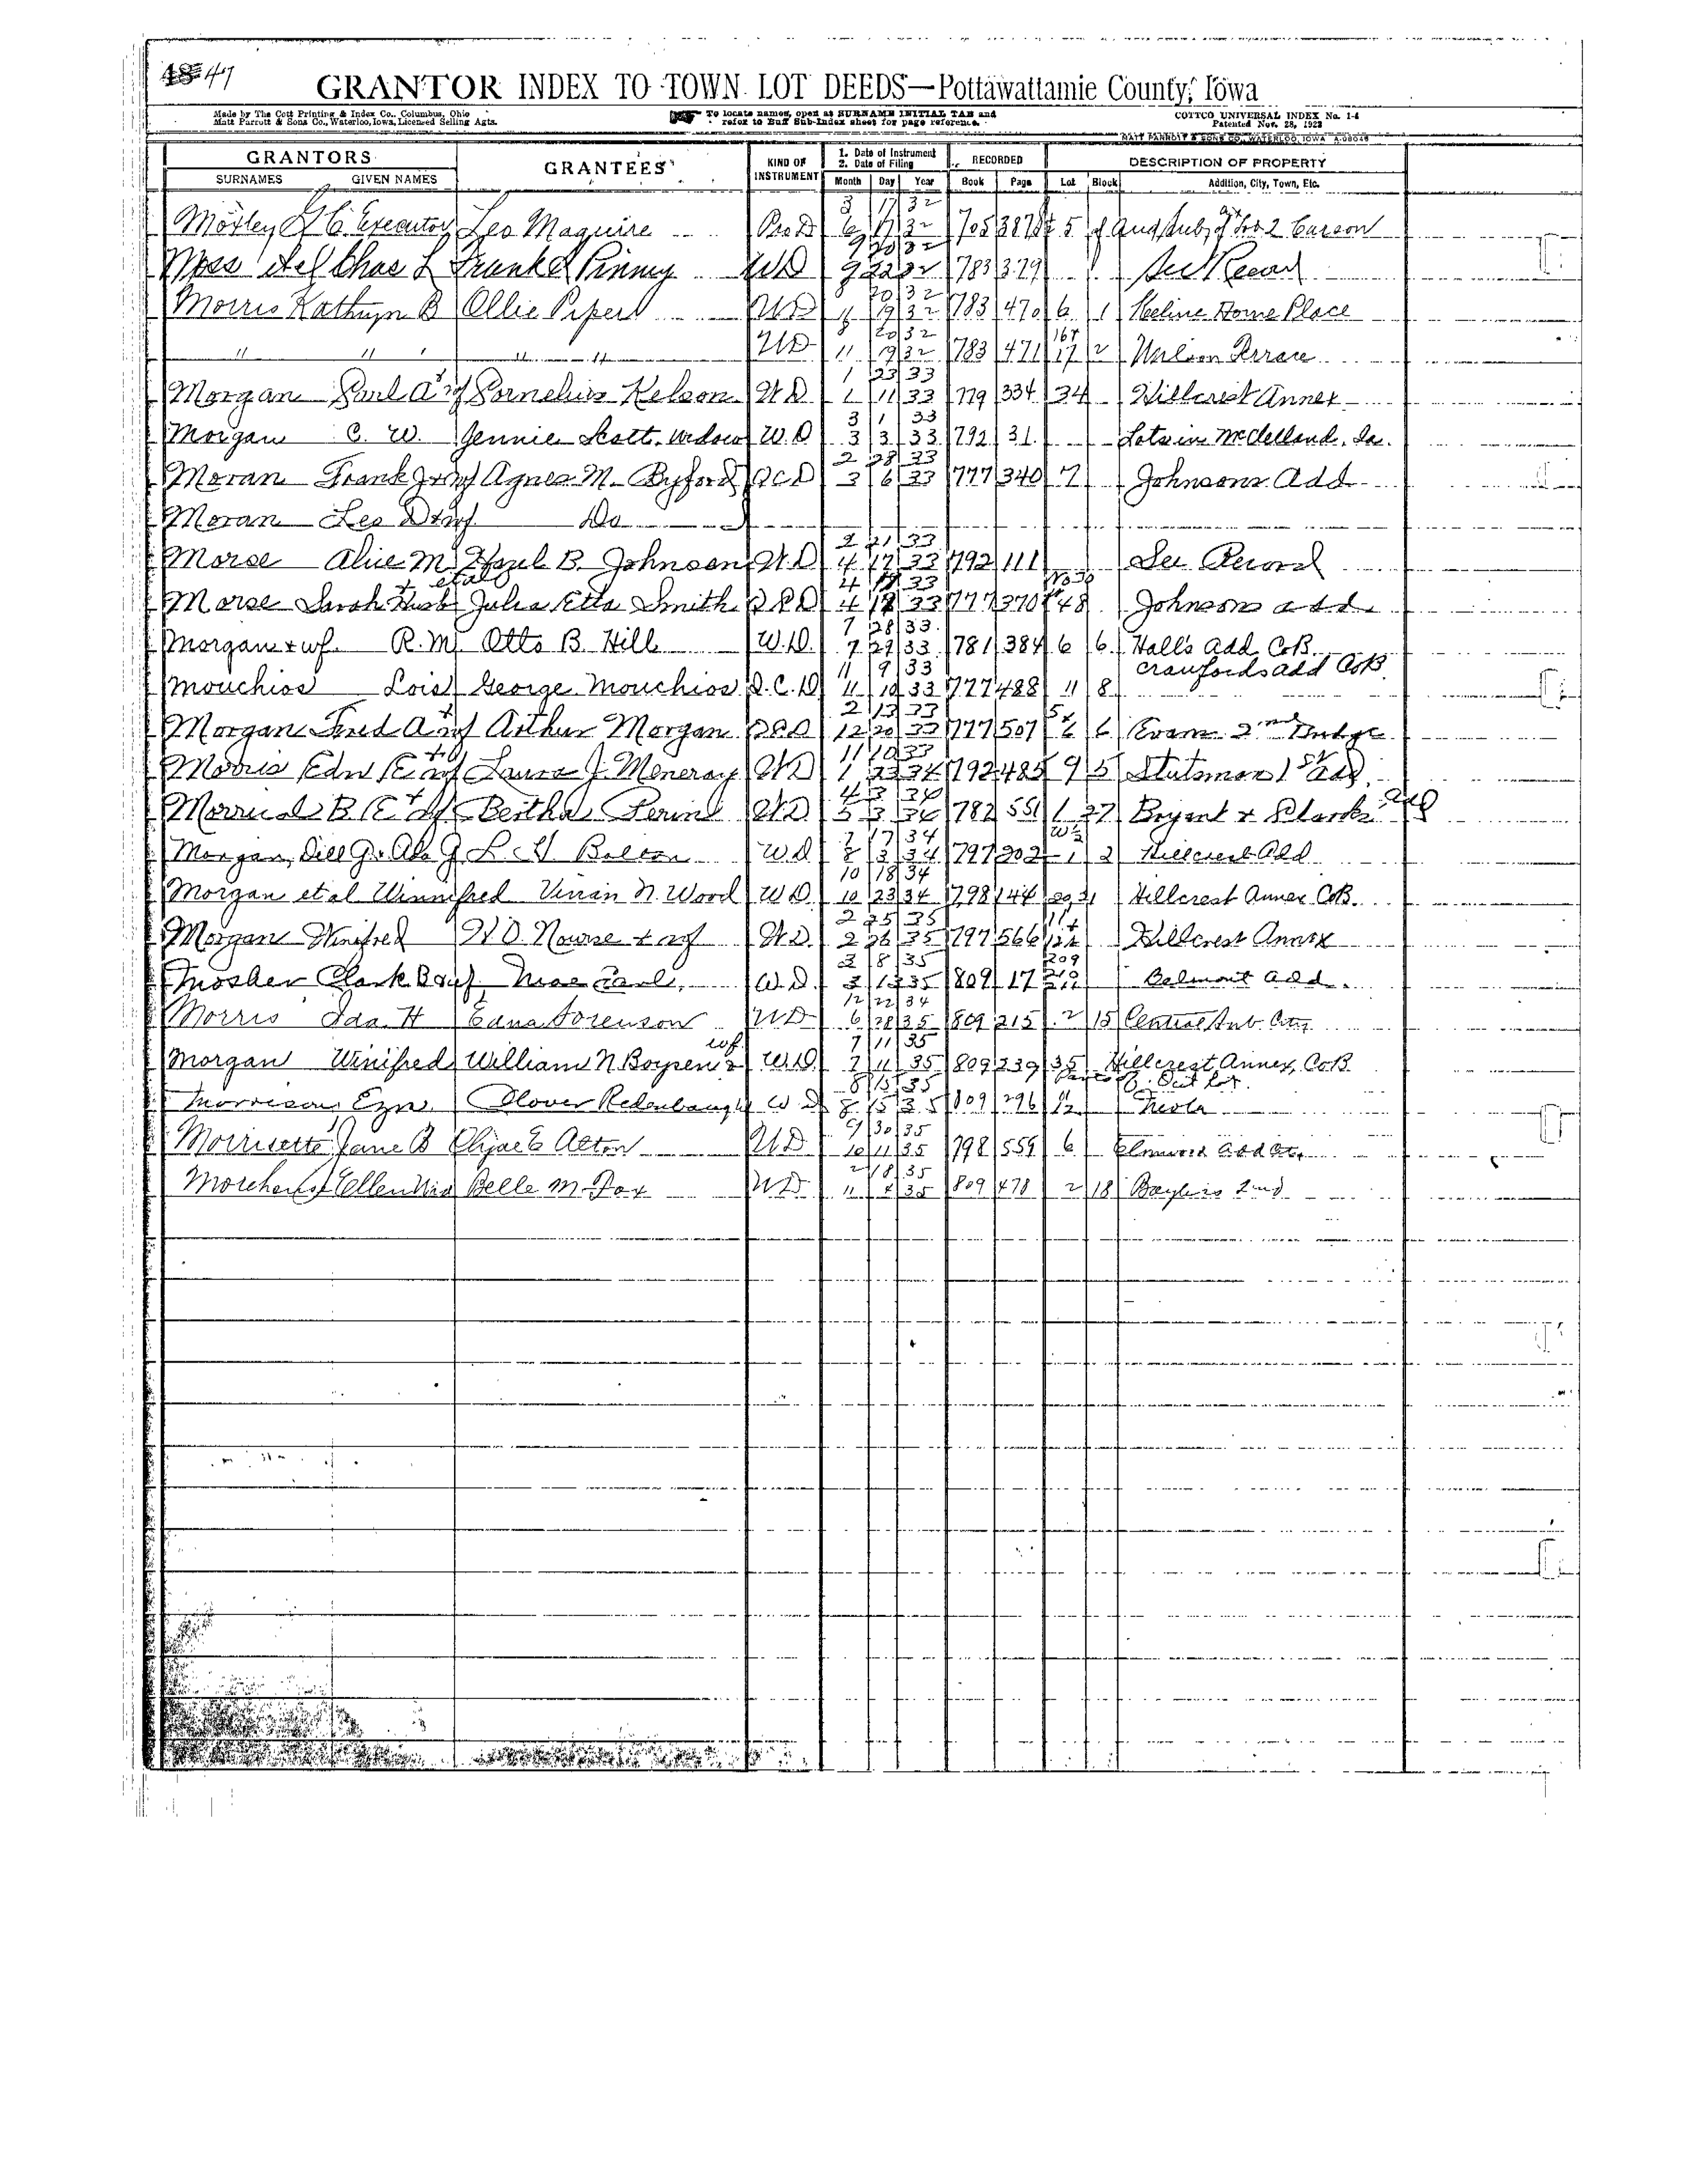 47
GRANTOR INDEX TO TOWN LOT DEEDS—Pottawattamie County, Iowa
Made by The Cott Printing & Index Co., Columbus, Ohio
Matt Parrott & Sons Co., Waterloo, Iowa, Licensed Selling Agts.
To locate names, open at SURNAME INITIAL TAB and
refer to Buff Sub-Index sheet for page reference.
COTTCO UNIVERSAL INDEX No. 1-4
Patented Nov. 28, 1922
MATT PARROTT & SONS CO., WATERLOO, IOWA
GRANTORS GRANTEES KIND OF INSTRUMENT 1. Date of Instrument 2. Date of Filing RECORDED DESCRIPTION OF PROPERTY
SURNAMES GIVEN NAMES Month Day Year Book Page Lot Block Addition, City, Town, Etc.
3 17 32
Executor Leo Maguire 6 17 32 705 387 5 Lot 2 Carson
9 20 32
Moss Chas L Frank Pinney WD 9 22 32 783 379 See Record
20 32
Morris Kathryn B Ollie Piper WD 11 19 32 783 470 6 1 Home Place
8 20 32 16+
" " " " WD 11 19 32 783 471 17 2 Terrace
1 23 33
Morgan Earl A + wf Cornelius Nelson WD 11 33 779 334 34 Hillcrest Annex
3 1 33
Morgan C. W. Jennie Scott, widow W.D 3 3 33 792 31 Lots in McClelland, Ia.
2 28 33
Moran Frank J + wf Agnes M. Byford QCD 3 6 33 777 340 7 Johnsons Add
Moran Leo D + wf Do
2 21 33
Morse Alice M Hazel B. Johnson W.D 4 17 33 792 111 See Record
+ etal 4 33
Morse Sarah + Husb Julia Etta Smith QCD 4 33 777 370 48 Johnsons add
7 28 33
Morgan + wf. R. M. Otto B. Hill W.D. 7 29 33 781 384 6 6 Hall's Add C.B.
11 9 33 Crawfords add CoB.
Mouchios Lois George Mouchios Q.C.D 11 10 33 777 488 11 8
2 13 33 5+
Morgan Fred A + wf Arthur Morgan QCD 12 20 33 777 507 6 6 Evans 2nd Bridge
11 10 33
Morris Edw E + wf Laura J. Meneray WD 1 23 34 792 485 9 5 Stutsman 1st Add.
4 3 34
B E + wf Bertha WD 5 3 34 782 551 1 27 Bryant & Clarks add
7 17 34 W½
Morgan, Dell G. + WD 8 3 34 797 202 1 2 Hillcrest Add
10 18 34
Morgan et al Winnifred Vivian N. Wood WD 10 23 34 798 144 Hillcrest Annex C.B.
2 25 35 11+
Morgan Winifred W.O. Nourse + wf W.D. 2 26 35 797 566 12 Hillcrest Annex
3 8 35 209
Mosher Clark B + wf Mae W.D. 3 13 35 809 17 210 Belmont add.
12 22 34
Morris Ida H Edna Sorenson WD 6 28 35 809 215 2 15 Central Sub City
wf 7 11 35
Morgan Winifred William N. Boysen & W.D 7 11 35 809 239 35 Hillcrest Annex, CoB
8 15 35 Out lot.
Morrison, Ezra Redenbaugh W D 8 15 35 809 296 Neola
9 30 35
Morrisette Jane B Alton WD 10 11 35 798 559 6 Elmwood add
2 18 35
Ellen Belle M. Fox WD 11 4 35 809 478 2 18 Bayliss 2nd